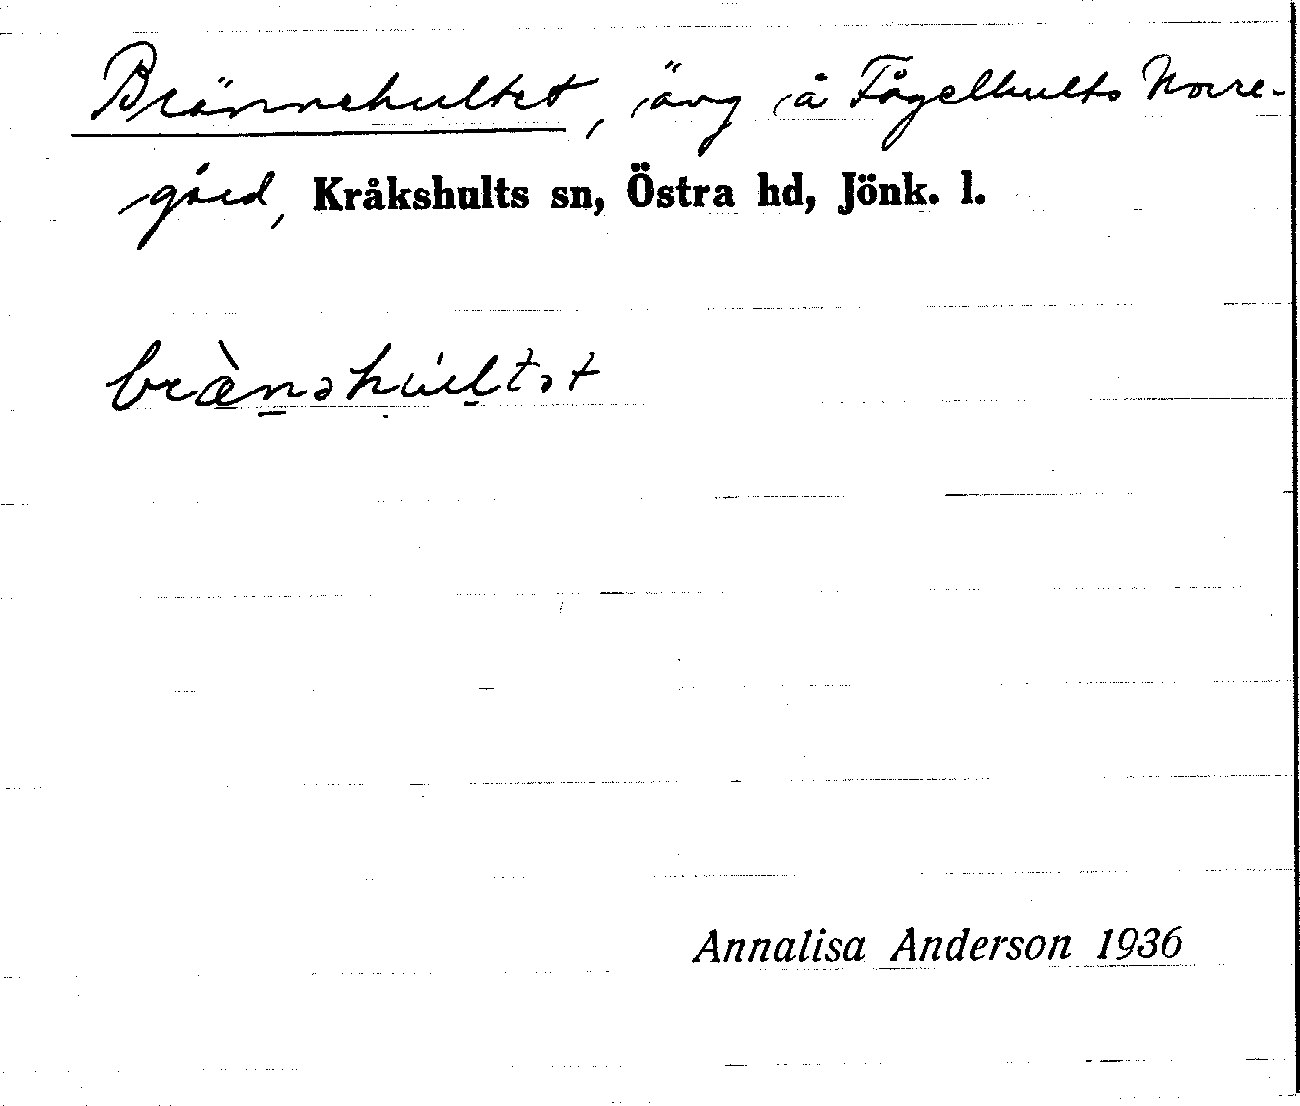 Brännehultet, äng å Fågelhults Norre-
gård, Kråkshults sn, Östra hd, Jönk. l.
bræ̀nəhúltət
Annalisa Anderson 1936